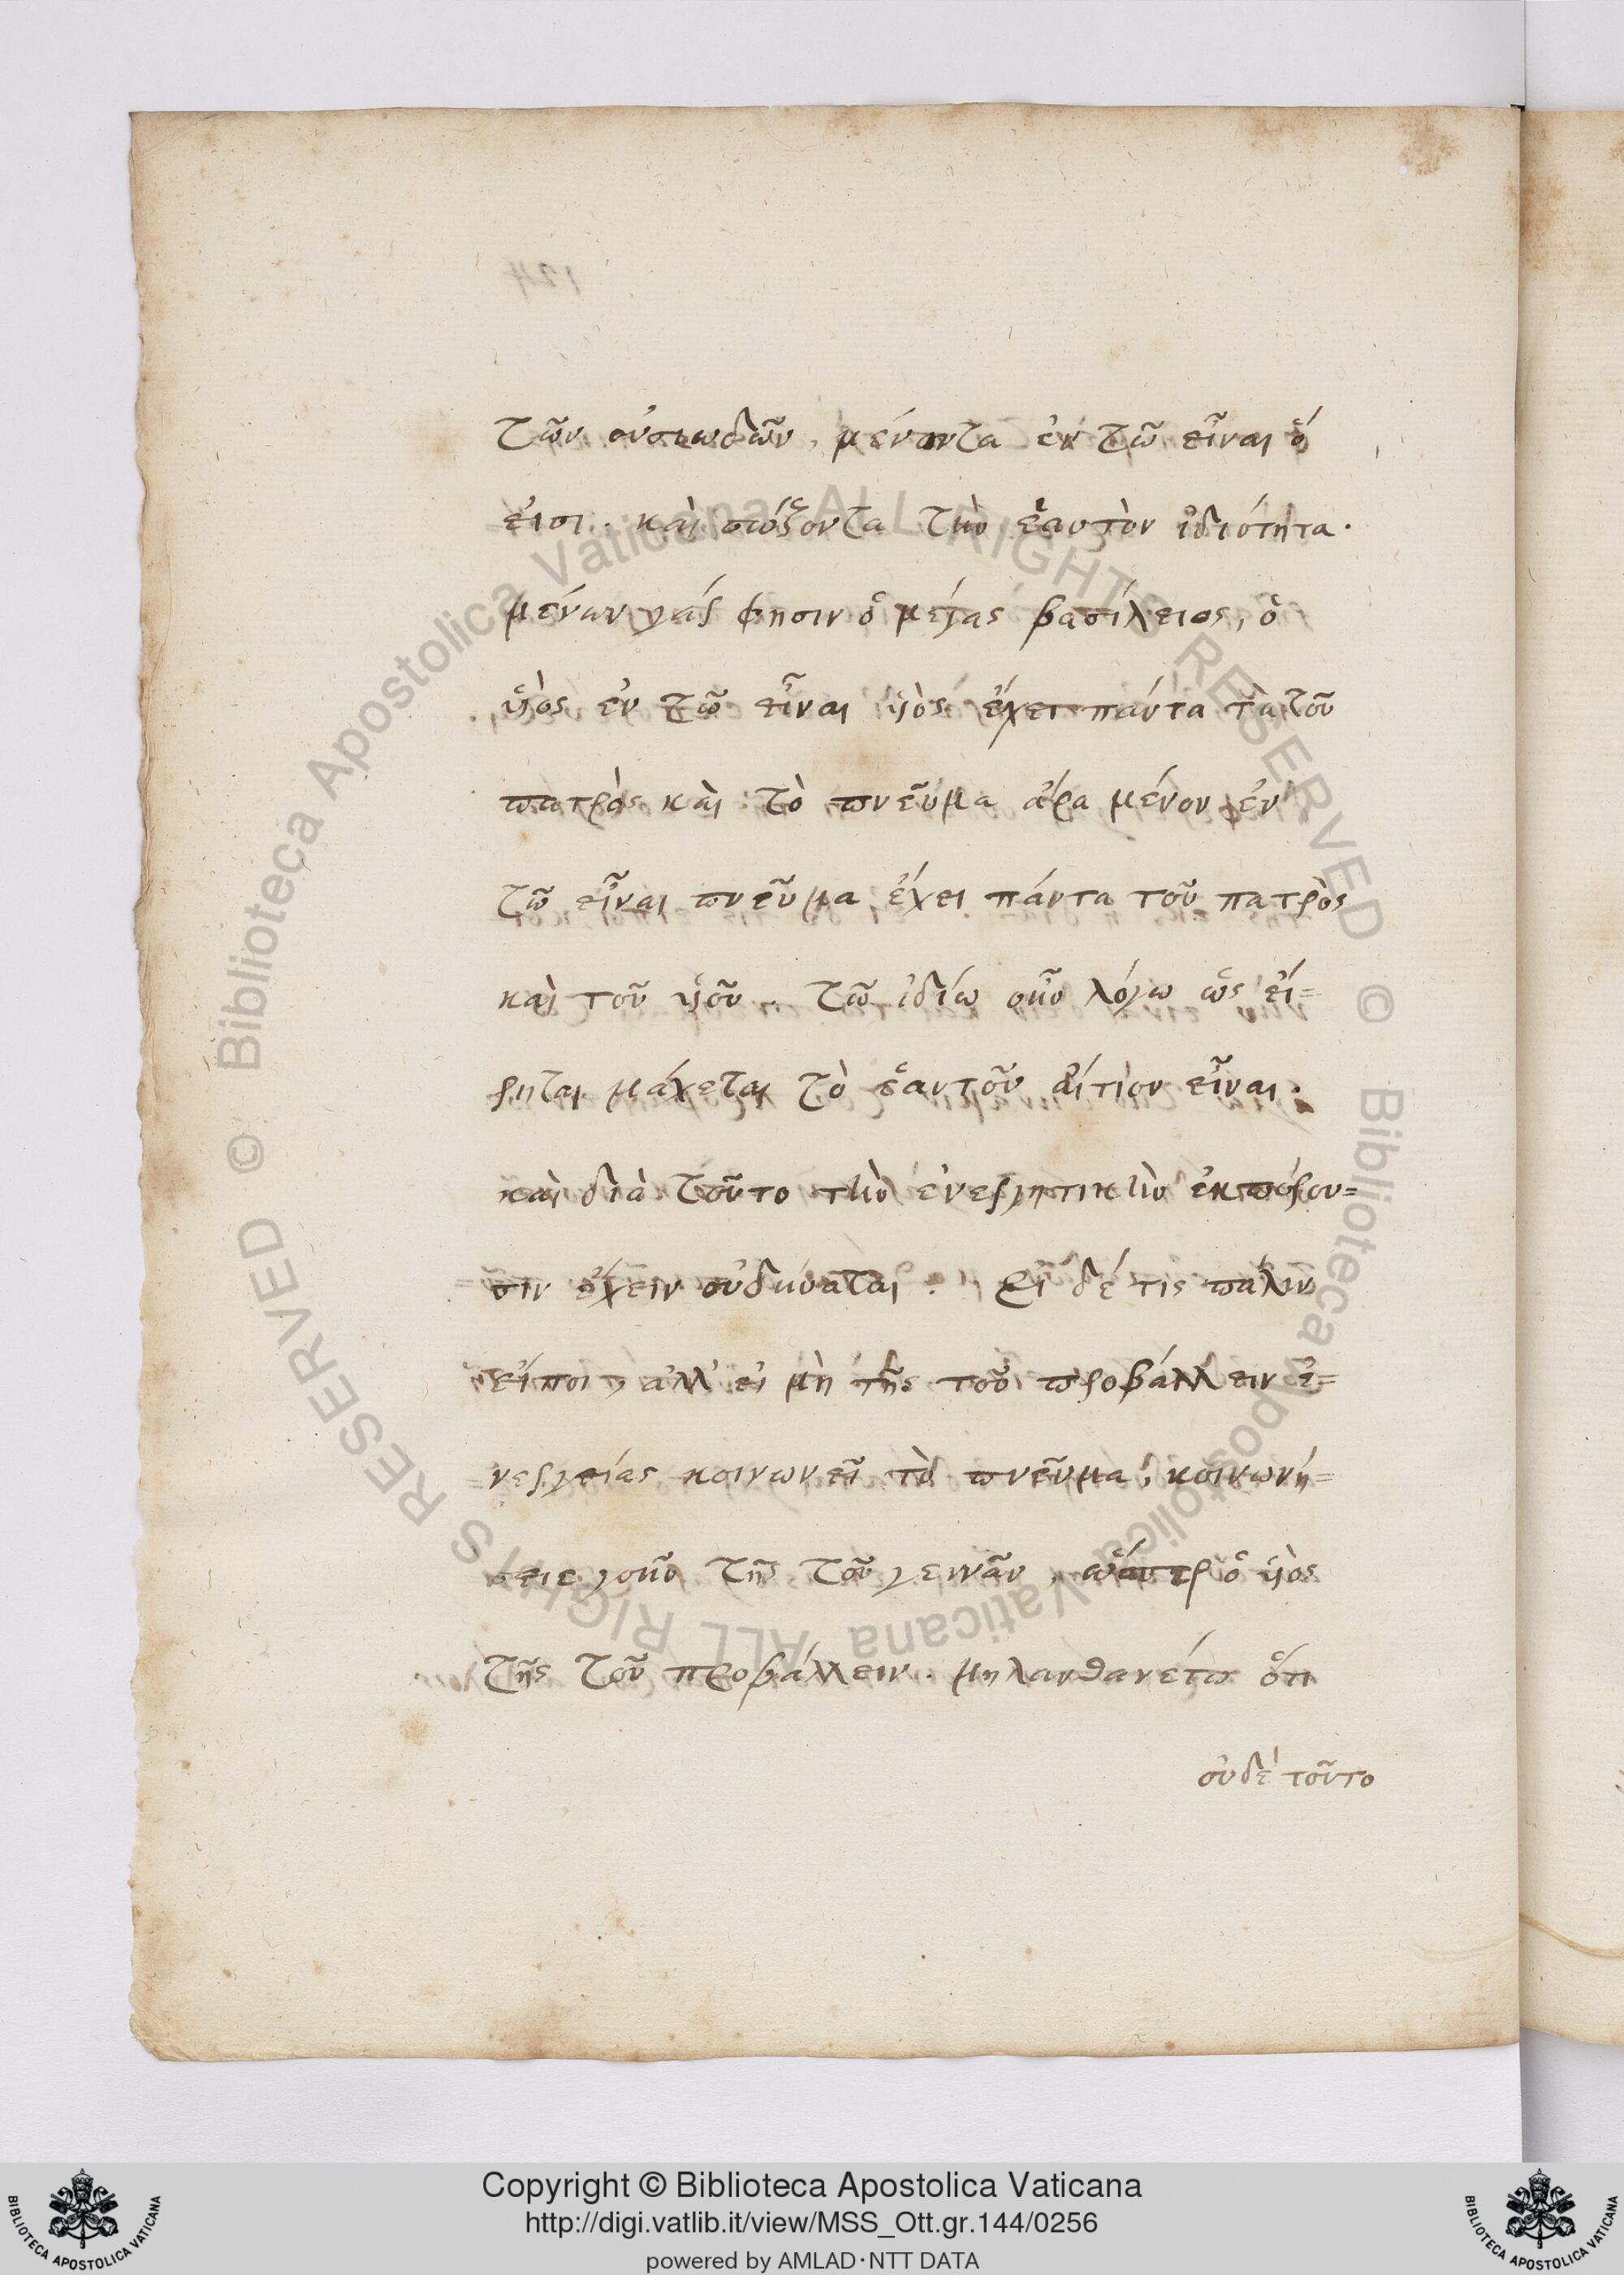 τῶν οὐσιωδῶν, μένοντα ἐν τῶ εἶναι ὅ
εἰσι. καὶ σώζοντα τὴν ἑαυτὸν ἰδιότητα.
μένων γάρ φησιν ὁ μέγας βασίλειος, ὁ
υἱὸς ἐν τῶ εἶναι υἱὸς ἔχει πάντα τὰ τοῦ
πατρὸς καὶ τὸ πνεῦμα ἄρα μένον ἐν
τῶ εἶναι πνεῦμα, ἔχει πάντα τοῦ πατρὸς
καὶ τοῦ υἱοῦ. τῶ ἰδίω οὖν λόγω ὡς εἴ=
ρηται μάχεται τὸ ἑαυτοῦ αἴτιον εἶναι.
καὶ διὰ τοῦτο τὴν ἐνεργητικὴν ἐκπόρευ=
σιν ἔχειν οὐ δύναται. Εἰ δέ τις πάλιν
εἴποι, ἀλλ' εἰ μὴ τῆς τοῦ προβάλλειν ἐ=
νεργείας κοινωνεῖ τὸ πνεῦμα, κοινωνή=
σει γοῦν τῆς τοῦ γεννᾶν, ὥσπερ ὁ υἱὸς
τῆς τοῦ προβάλλειν. μὴ λανθανέτω ὅτι
οὐδὲ τοῦτο
124
© Biblioteca Apostolica Vaticana ALL RIGHTS RESERVED
© Biblioteca Apostolica Vaticana ALL RIGHTS RESERVED
BIBLIOTECA APOSTOLICA VATICANA
Copyright © Biblioteca Apostolica Vaticana
http://digi.vatlib.it/view/MSS_Ott.gr.144/0256
powered by AMLAD·NTT DATA
BIBLIOTECA APOSTOLICA VATICANA